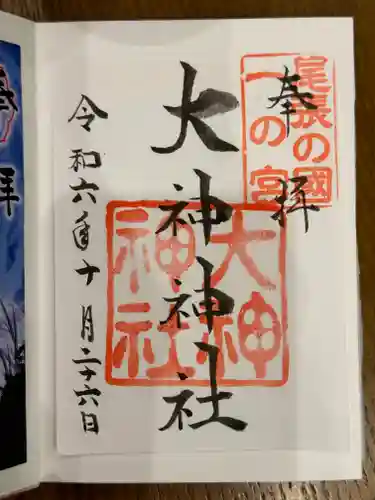 奉拝
尾張の國
一の宮
大神神社
大神
神社
令和六年十月二十六日
奉
拝